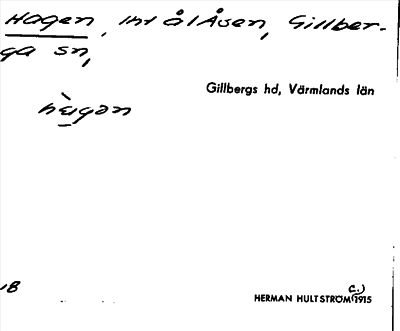 Hagen, Int ål Åsen, Gillber-
ga sn,
Gillbergs hd, Värmlands län
IB
c.)
HERMAN HULTSTRÖM 1915